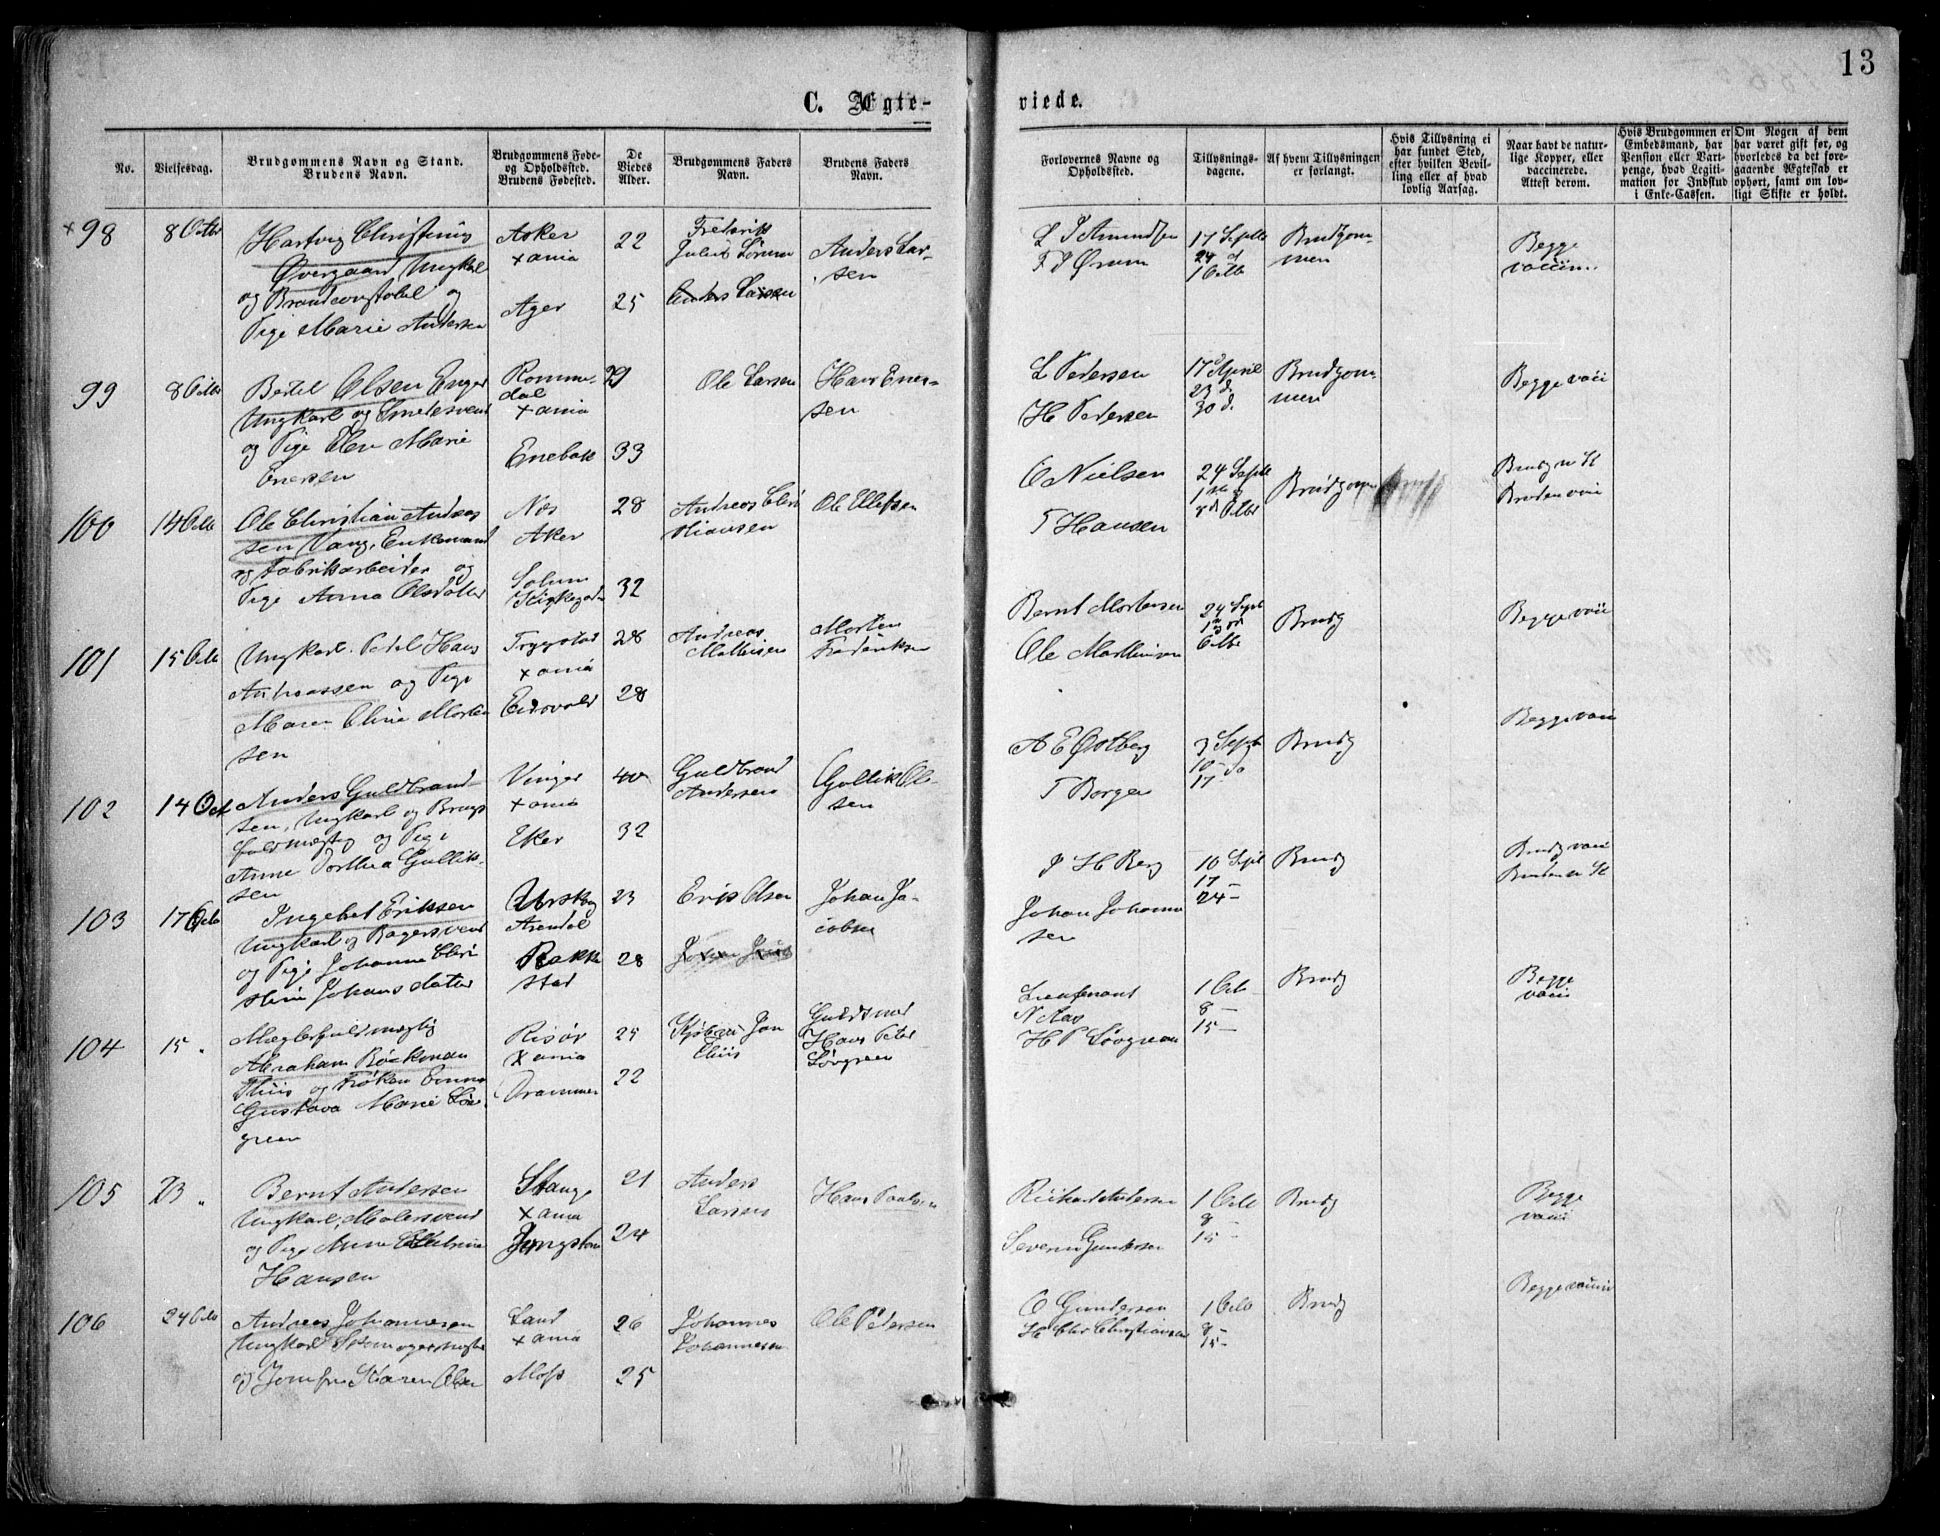 13
C. Ægte-
viede.
No.
Vielsesdag.
Brudgommens Navn og Stand.
Brudens Navn.
Brudgommens Føde-
og Opholdssted.
Brudens Fødested.
De
Viedes
Alder.
Brudgommens Faders
Navn.
Brudens Faders
Navn.
Forlovernes Navne og
Opholdssted.
Tillysnings-
dagene.
Af hvem Tillysningen
er forlangt.
Hvis Tillysning ei
har fundet Sted,
efter hvilken Bevil-
ling eller af hvad
lovlig Aarsag.
Naar havt de natur-
lige Kopper, eller
vaccinerede.
Attest derom.
Hvis Brudgommen er
Embedsmand, har
Pension eller Vart-
penge, hvad Legiti-
mation for Indskud
i Enke-Cassen.
Om Nogen af dem
har været gift før, og
hvorledes da det fore-
gaaende Ægteskab er
ophørt, samt om lov-
ligt Skifte er holdt.
+98 8 Octbr
Hartvig Christinus
Overgaard, Ungkal
og Brandconstabel og
Pige Marie Andersen
Asker
Xania
Ager
22
25
Frederik
Anders Larsen
Anders Lar-
sen
L P Amundsen
T P Ørum
17 Septb
24 d
1 Octb
Brudgom-
men
Begge
vaccin.
99 8 Octbr
Bertel Olsen Enger
Ungkarl og Smedesvend
og Pige Elen Marie
Enersen
Romme-
dal
Xania
Enebak
29
33
Ole Larsen
Hans Ener-
sen
L Pedersen
H Pedersen
17 April
23 d.
30 d.
Brudgom-
men
Begge vacc
100 14 Octb
Ole Christian Andreas
sen Vang, Enkemand
og Fabriksarbeider og
Pige Anna Olsdatter
Næs
Aker
Solum
28
32
Andreas Chri
stiansen
Ole Ellefsen
O Nielsen
T Hansen
24 Septb
1
8 Octbr
Brudgom
Brudg n K
Bruden vacc
101 15 Octb
Ungkarl Peder Hans
Andreassen og Pige
Maren Oline Morten
sen
Trygstad
Xania
Eidsvold
28
28
Andreas
Mathisen
Morten
Frederiksen
Bernt Mortensen
Ole Martinsen
24 Sept
1
Octbr
Brudg
Begge vacc
102 14 Oct
Anders Guldbrand
sen, Ungkarl og Brugs
fuldmægtig og Pige
Anne Dorthea Gullik-
sen
Vinger
Xania
Eker
40
32
Guldbrand
Andersen
Gullik Ol-
sen
A E Østberg
T Borgen
3 Septb
10 do
17
Brudg
Begge vacc
103 17 Octb
Ingebret Eriksen
Ungkarl og Bagersvend
og Pige Johanne Chri
stine Johansdatter
Urskog
Arendal
Rakke
stad
23
28
Erik Olsen
Johan Ja-
cobsen
P H Berg
Johan Johanne
sen
10 Sept
17
24 –
Brudg
Brudg vacc
Bruden n K
104 15 „
Mæglerfuldmægtig
Abraham Bøckman
Thiis og Frøken Emma
Gustava Marie Løv-
green
Risør
Xania
Drammen
25
22
Thiis
Guldsmed
Hans Peter
Løvgreen
Lieutenant
N Aas
H P Løvgreen
1 Octb
8 –
15 –
Brudg
Begge
vacc
105 23 „
Bernt Andersen
Ungkarl, Malersvend
og Pige Anne Cathrine
Hansen
Stange
Xania
21
24
Anders
Larsen
Hans Paulsen
Richard Andersen
Severin Gundersen
1 Octb
8
15 –
Brudg
Begge
vacc
106 24 Octb
Andreas Johannesen
Ungkarl Skomagermester
og Jomfru Karen Olsen
Land
Xania
Moss
26
25
Johannes
Johannesen
Ole Pedersen
O Gundersen
H Chr Christiansen
1 Octb
8 –
15 –
Brudg
Begge vaccin